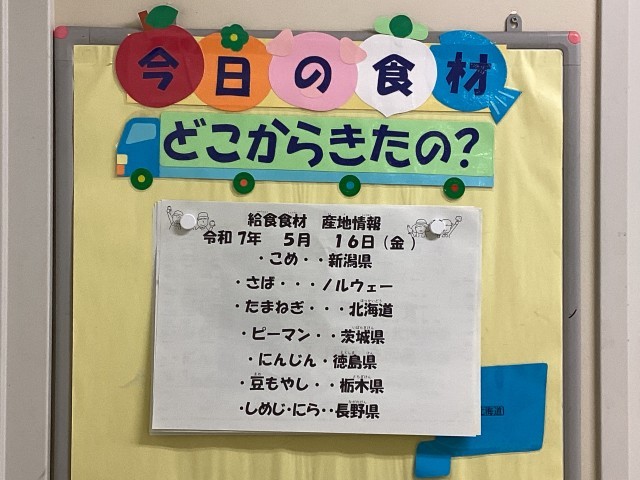 今日の食材
どこからきたの?
給食食材 産地情報
令和7年 5月 16日(金)
・こめ・・新潟県
・さば・・・ノルウェー
・たまねぎ・・・北海道
・ピーマン・・茨城県
・にんじん・徳島県
・豆もやし・・栃木県
・しめじ・にら・・長野県
北海道